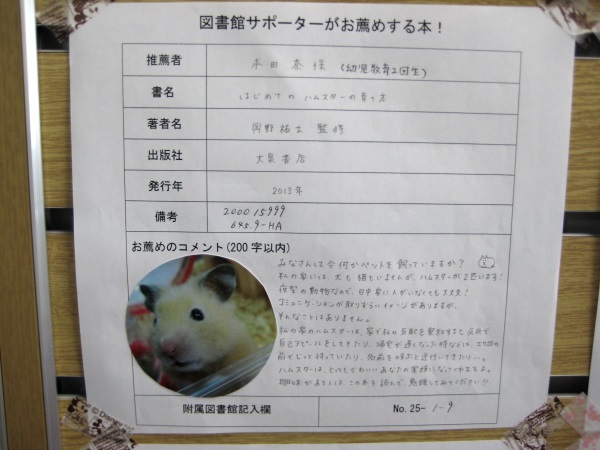 図書館サポーターがお薦めする本!
推薦者 本田 奈保 (幼児教育2回生)
書名 はじめての ハムスターの育て方
著者名 岡野祐士 監修
出版社 大泉書店
発行年 2013年
備考 200015999
645.9-HA
お薦めのコメント(200字以内)
みなさんは今何かペットを飼っていますか?
私の家には、犬も猫もいませんが、ハムスターが2匹います!
夜型の動物なので、日中家に人がいなくても大丈夫!
コミュニケーションが取りづらいイメージがありますが、
そんなことはありません。
私の家のハムスターは、家で私の気配を察知すると必死で
自己アピールをしてきたり、
前でじっと待っていたり、名前を呼ぶと近付いてきたり…。
ハムスターは、とってもかわいいあなたの家族になってくれますよ。
興味がある人は、この本を読んで、勉強してみてください!!
附属図書館記入欄 No.25-1-9
© Disney